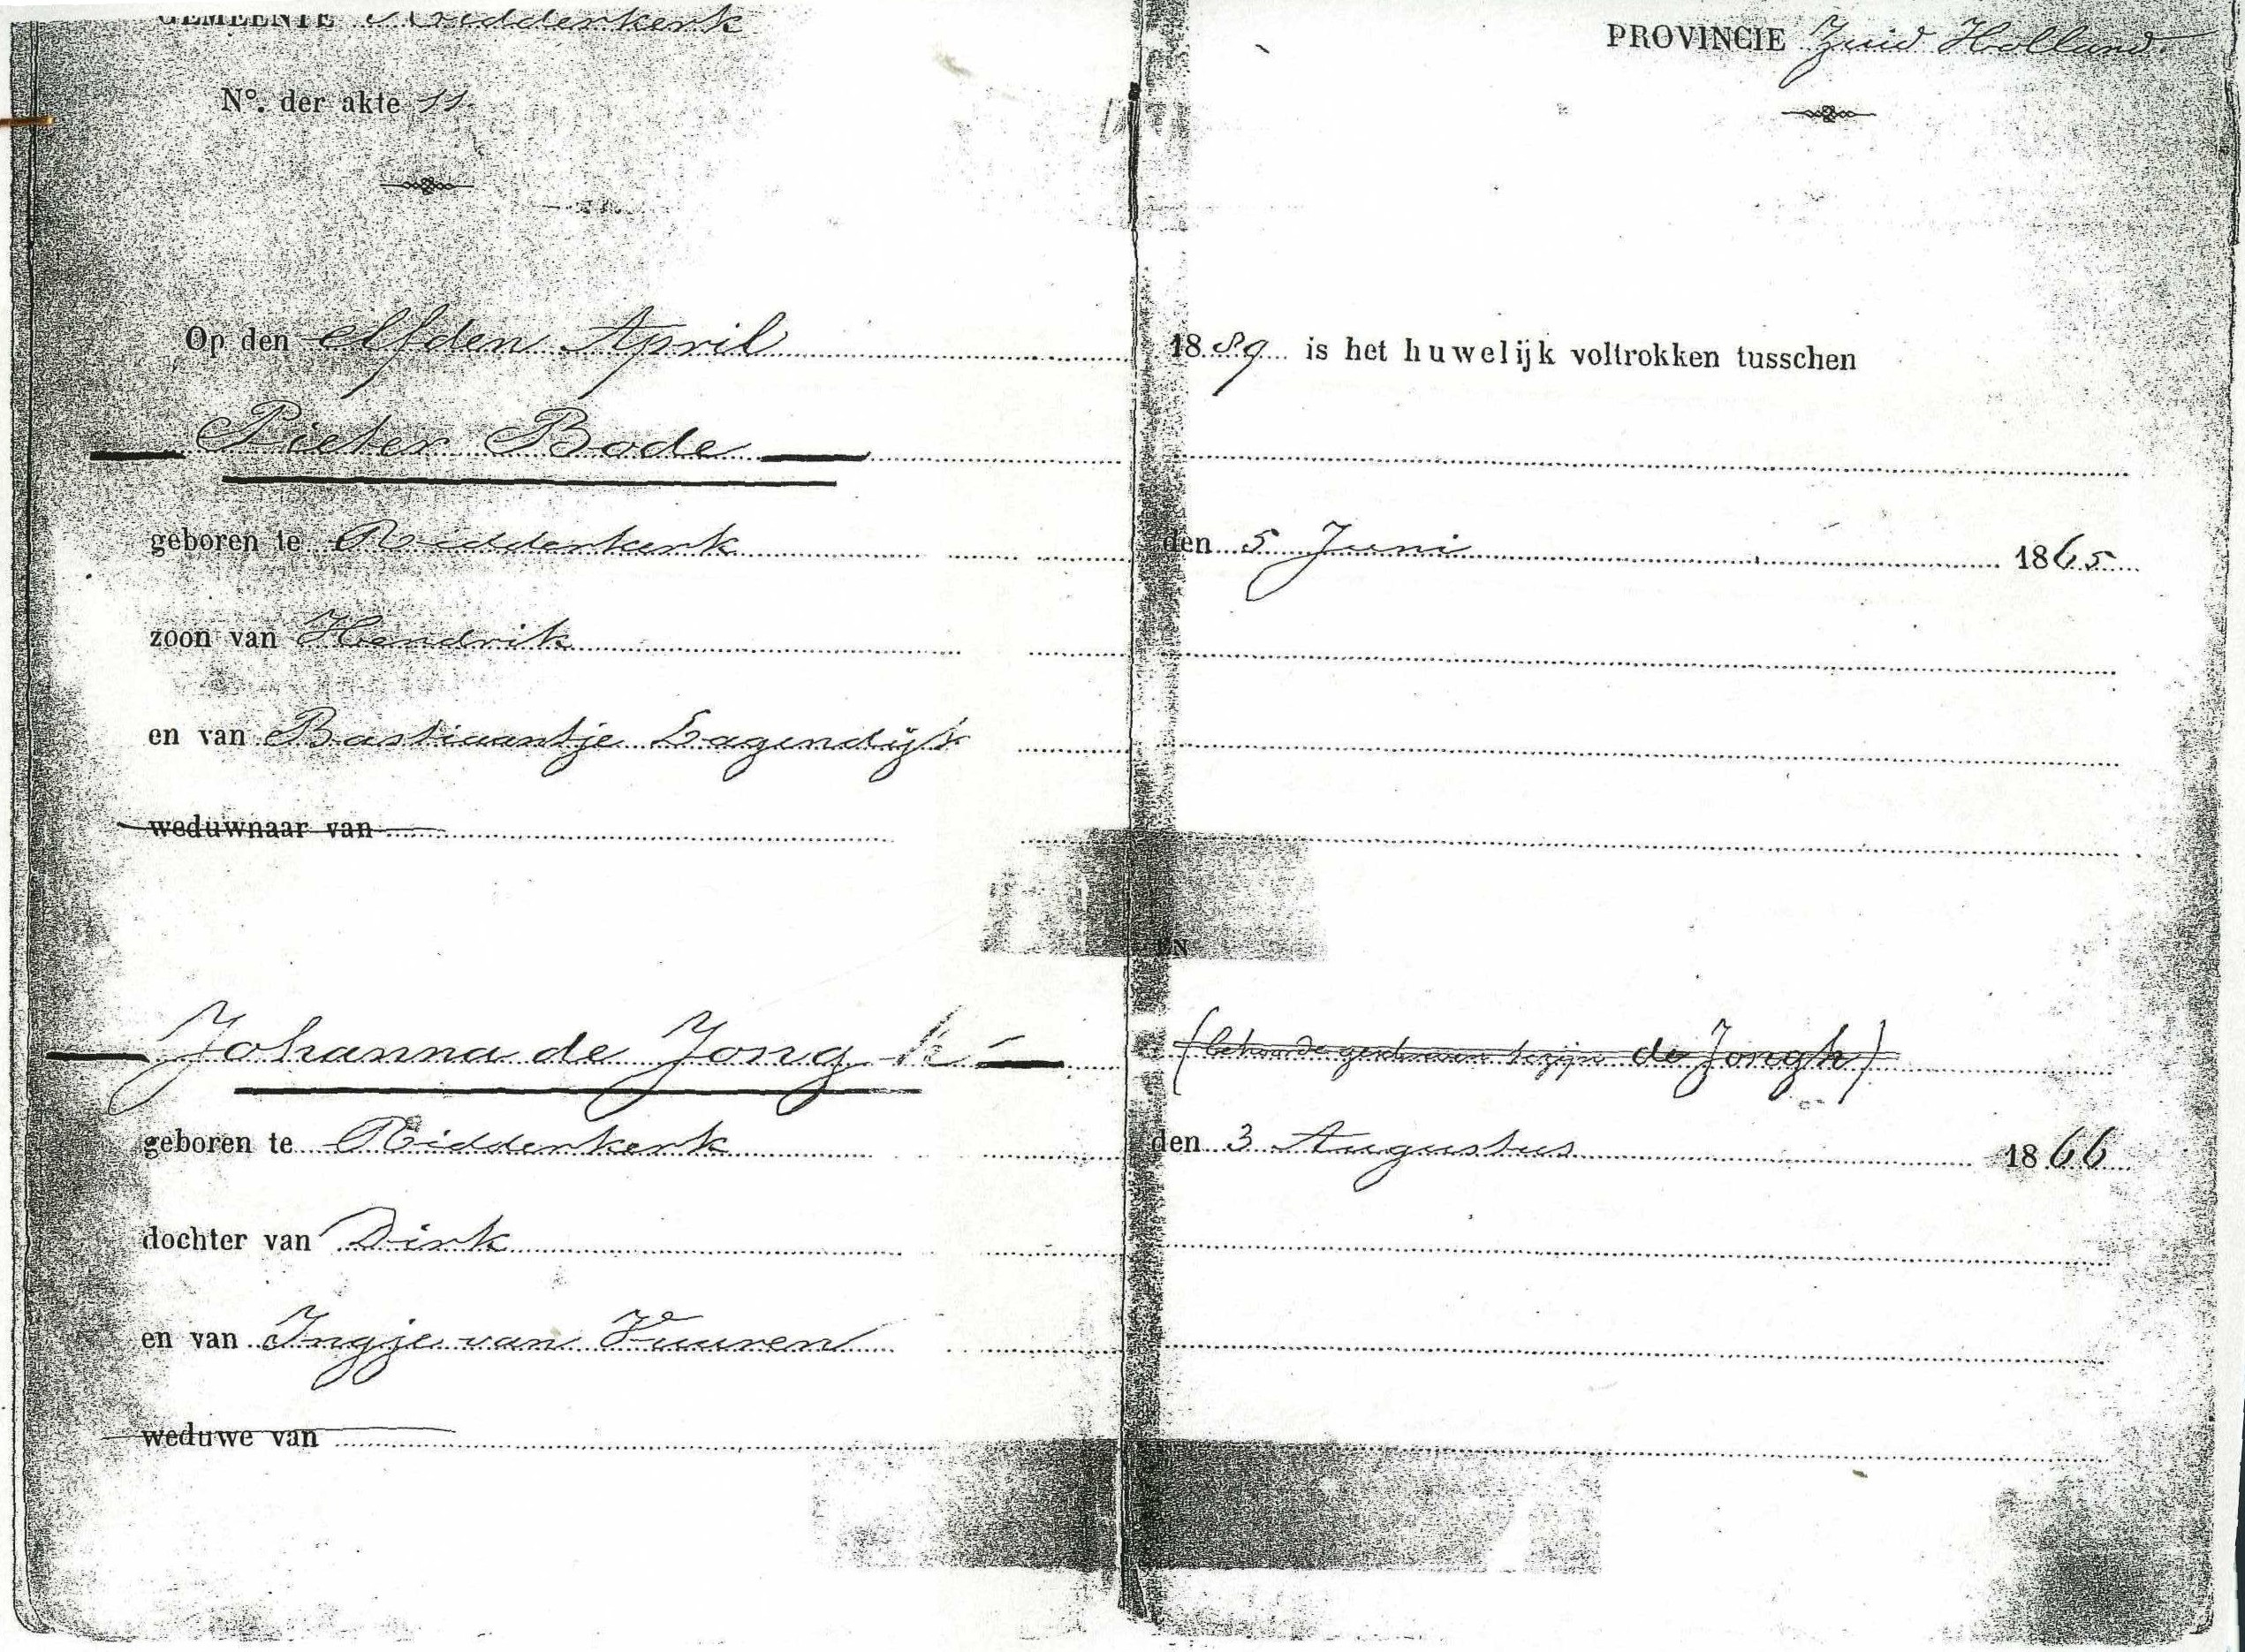 GEMEENTE Ridderkerk
PROVINCIE Zuid Holland.
N°. der akte 11.
Op den elfden April 1889 is het huwelijk voltrokken tusschen
Pieter Bode
geboren te Ridderkerk den 5 Juni 1865
zoon van Hendrik
en van Bastiaantje Lagendijk
weduwnaar van
EN
Johanna de Jong h (behoorde geschreven te zijn de Jongh)
geboren te Ridderkerk den 3 Augustus 1866
dochter van Dirk
en van Ingje van Vuuren
weduwe van